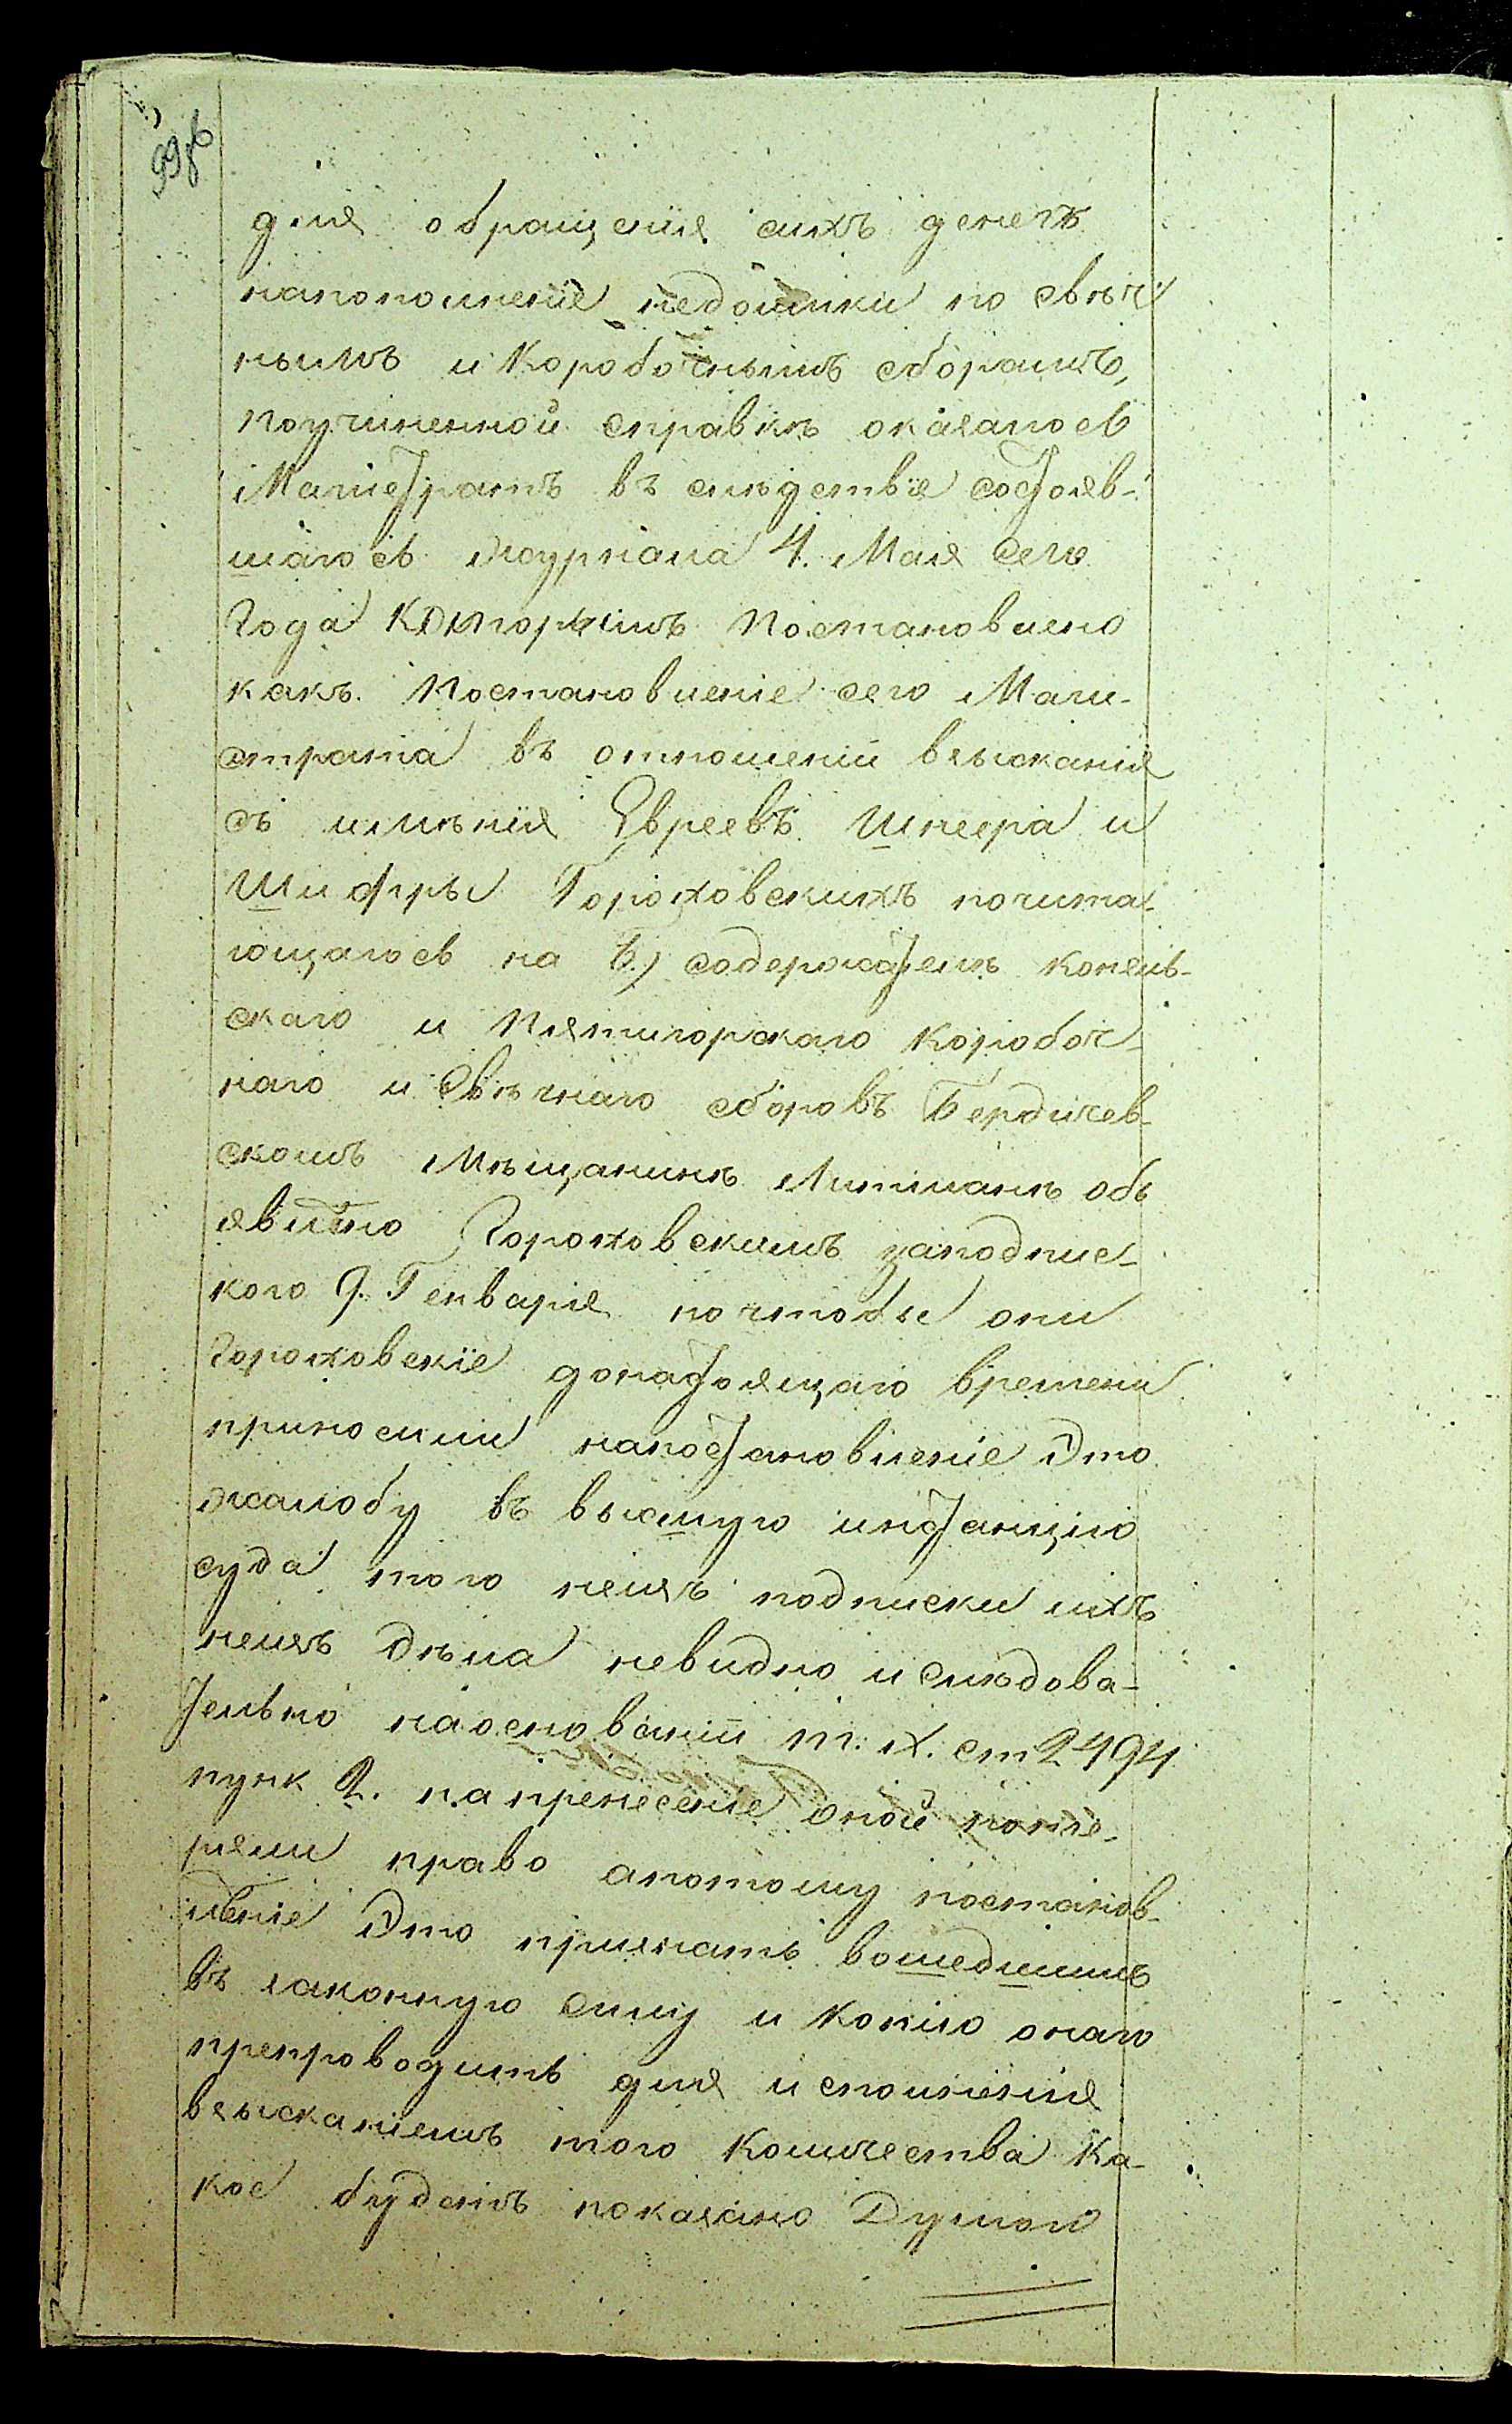 для обращенія сихъ денегъ
напополненіе недоимки по свѣч
нымъ и Коробочнымъ сборамъ,
поучиненной справкѣ оказалось
Магистратъ въ слѣдствіе состояв-
шагось журнала 4. Мая сего
Года которымъ постановлено
какъ постановленіе сего Маги-
страта въ отношеніи взысканія
съ имѣнія Евреевъ Шнеера и
Шифры Гороховскихъ почита-
ющагось на Б.) содержателѣ Конель-
скаго и Пятигорскаго Коробоч-
наго и Свѣчнаго сборовъ Бердичев-
скомъ Мѣщанинѣ Литманѣ объ
явлѣно Гороховскимъ заподпис-
кого 9. Генваря ночтобы они
Гороховскіе донастоящаго времени
приносили напостановленіе Это
жалобу въ высшую инстанцію
суда того неизъ подписки ихъ
неизъ дѣла невидно и слѣдова-
тельно наоснованіи т: X. ст 2494
пунк 2. напренесеніе оной поте-
ряли право апотому постанов-
леніе Это признать вошедшимъ
въ законную силу и Копію онаго
препроводить для исполненія
взысканіемъ того Количества ка-
кое будетъ показано Думою